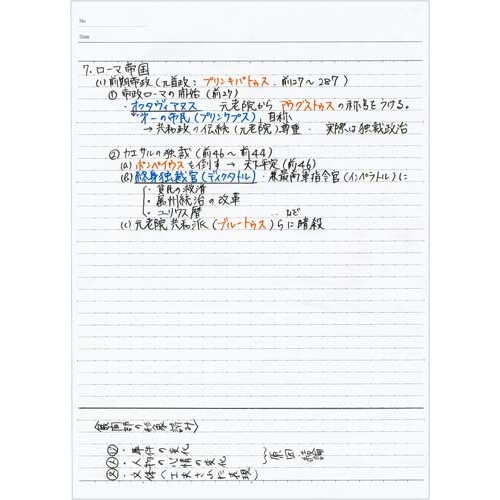 No.
Date
7. ローマ帝国
(1) 前期帝政(元首政:プリンキパトゥス. 前27〜287)
① 帝政ローマの開始(前27)
・オクタヴィアヌス 元老院から アウグストゥスの称号をうける。
オーの市民(プリンケプス)」自称
→ 共和政の伝統(元老院)尊重・ 実際は独裁政治
② カエサルの独裁(前46〜前44)
(a) ポンペイウスを倒す → 天下平定(前46)
(b) 終身独裁官(ディクタトル)・兼最高軍指令官(インペラトル)に
・貧民の救済
・属州統治の改革
・ユリウス暦 ... など
(c) 元老院共和派(ブルートゥス)らに暗殺
・事件の変化
・人物の心情の変化
・文体(工夫された表現)
原因・結論